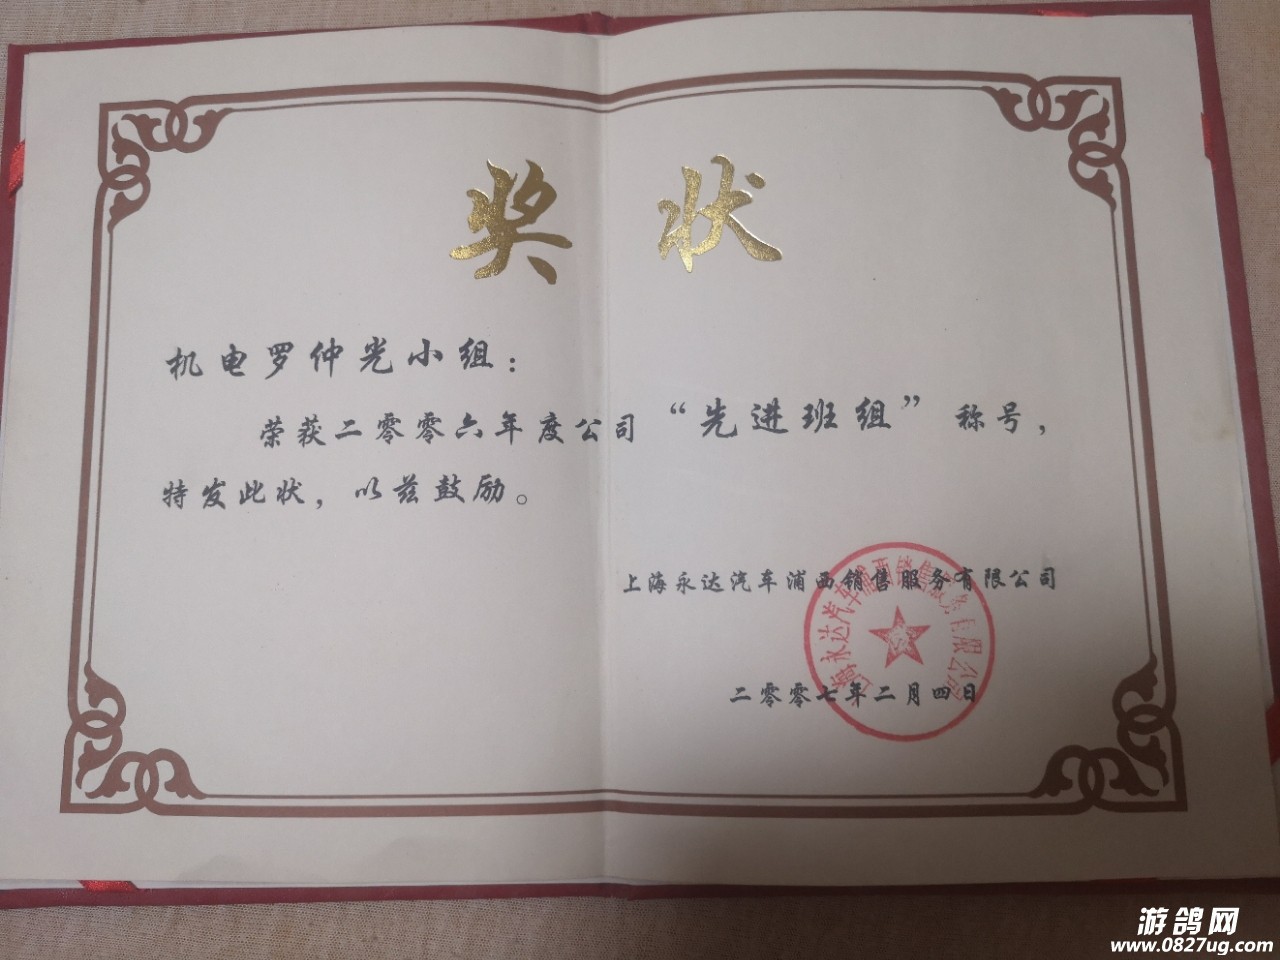 奖状
机电罗仲光小组：
荣获二零零六年度公司“先进班组”称号，
特发此状，以兹鼓励。
上海永达汽车浦西销售服务有限公司
上海永达汽车浦西销售服务有限公司
二零零七年二月四日
游鸽网
www.0827ug.com